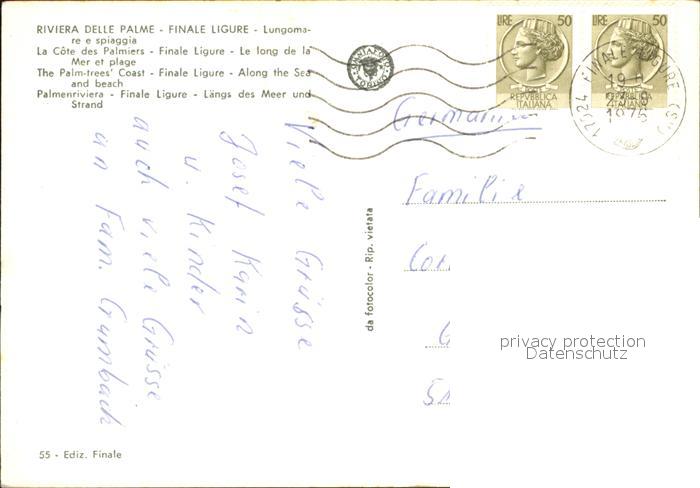 RIVIERA DELLE PALME - FINALE LIGURE - Lungoma-
re e spiaggia
La Côte des Palmiers - Finale Ligure - Le long de la
Mer et plage
The Palm-trees' Coast - Finale Ligure - Along the Sea
and beach
Palmenriviera - Finale Ligure - Längs des Meer und
Strand
LIRE 50
REPVBBLICA
ITALIANA
LIRE 50
REPVBBLICA
ITALIANA
17024 FINALE LIGURE (SV)
1976
Germania
Viele Grüsse
Josef Karin
u. Kinder
auch viele Grüsse
an Fam. Grumbach
da fotocolor - Rip. vietata
Familie
privacy protection
Datenschutz
55 - Ediz. Finale